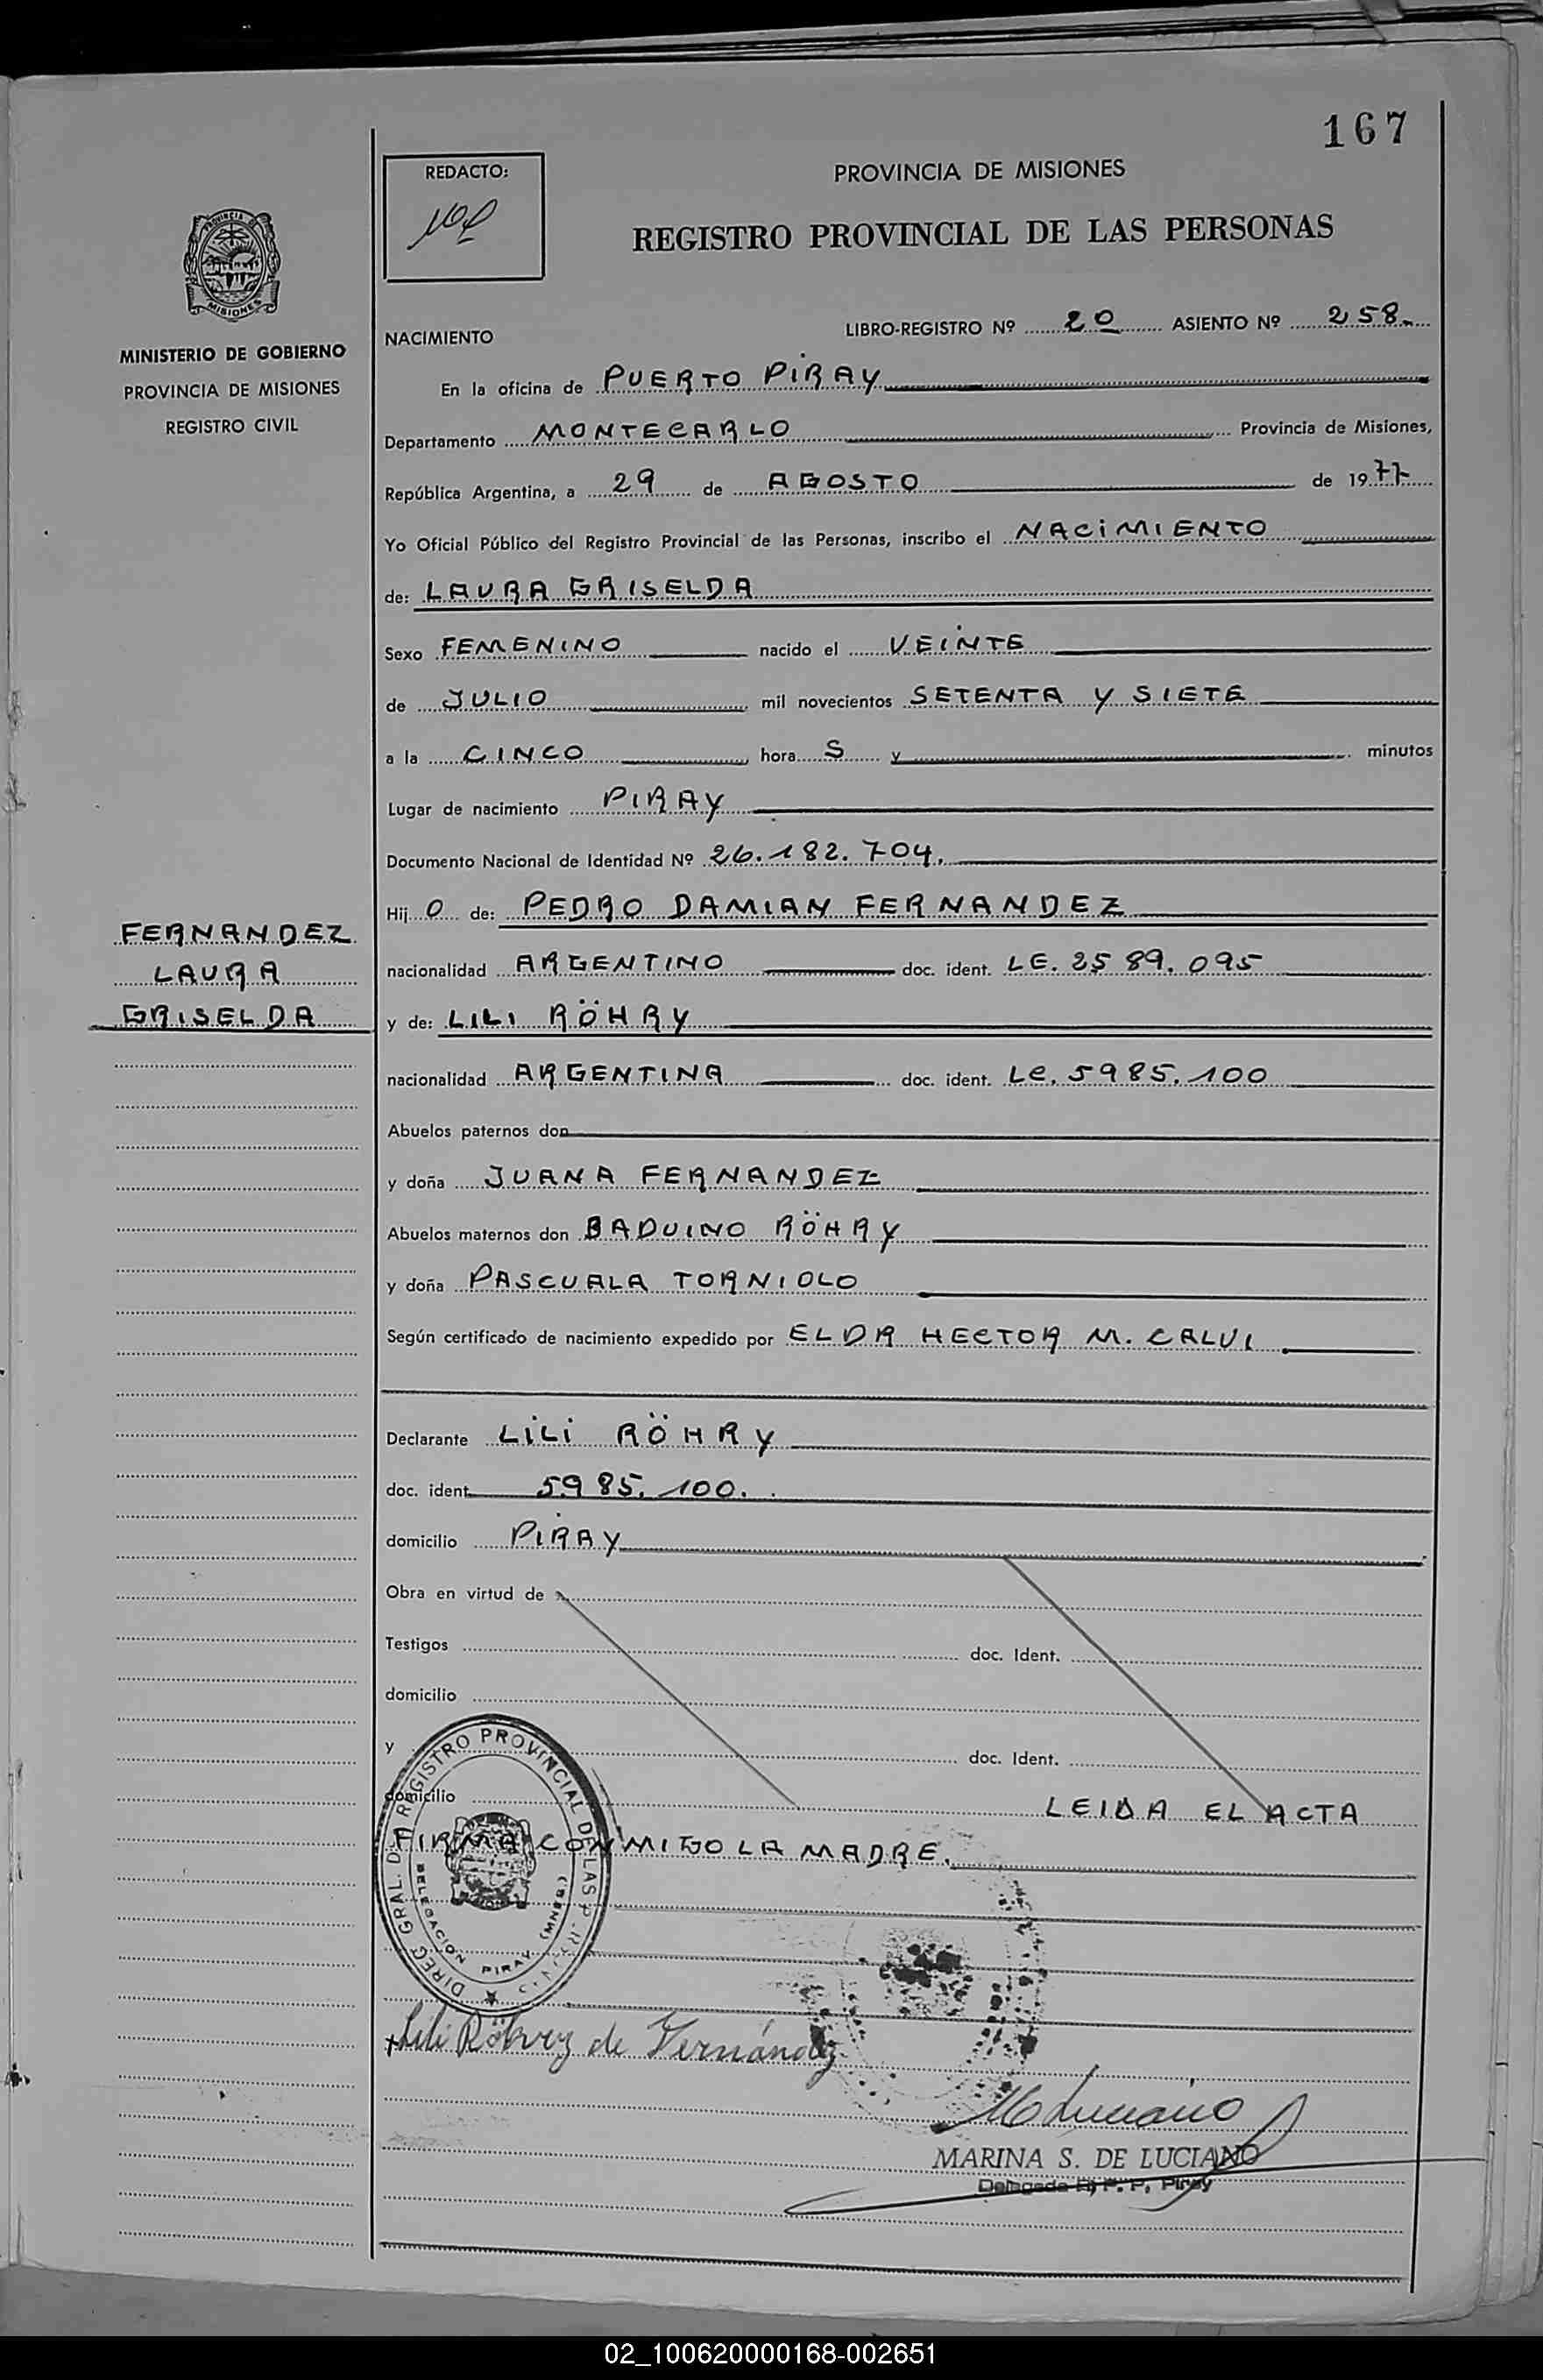 167
REDACTO:
PROVINCIA DE MISIONES
REGISTRO PROVINCIAL DE LAS PERSONAS
PROVINCIA DE
MISIONES
MINISTERIO DE GOBIERNO
PROVINCIA DE MISIONES
REGISTRO CIVIL
NACIMIENTO
LIBRO-REGISTRO Nº 20 ASIENTO Nº 258
En la oficina de PUERTO PIRAY
Departamento MONTECARLO Provincia de Misiones,
República Argentina, a 29 de AGOSTO de 1977
Yo Oficial Público del Registro Provincial de las Personas, inscribo el NACIMIENTO
de: LAURA GRISELDA
Sexo FEMENINO nacido el VEINTE
de JULIO mil novecientos SETENTA Y SIETE
a la CINCO hora S y minutos
Lugar de nacimiento PIRAY
Documento Nacional de Identidad Nº 26.182.704.
Hij O de: PEDRO DAMIAN FERNANDEZ
FERNANDEZ
LAURA
GRISELDA
nacionalidad ARGENTINO doc. ident. LE. 2589.095
y de: LILI RÖHRY
nacionalidad ARGENTINA doc. ident. Le. 5985.100
Abuelos paternos don
y doña JUANA FERNANDEZ
Abuelos maternos don BADUINO RÖHRY
y doña PASCUALA TORNIOLO
Según certificado de nacimiento expedido por EL DR HECTOR M. CALVI
Declarante LILI RÖHRY
doc. ident. 5985.100.
domicilio PIRAY
Obra en virtud de
Testigos doc. Ident.
domicilio
y doc. Ident.
domicilio LEIDA EL ACTA
FIRMA CONMIGO LA MADRE.
DIREC. GRAL. DEL REGISTRO PROVINCIAL DE LAS
DELEGACION PIRAY (MNES)
Lili Röhry de Fernández
MARINA S. DE LUCIANO
Delegada R. P. P. Piray
02_100620000168-002651